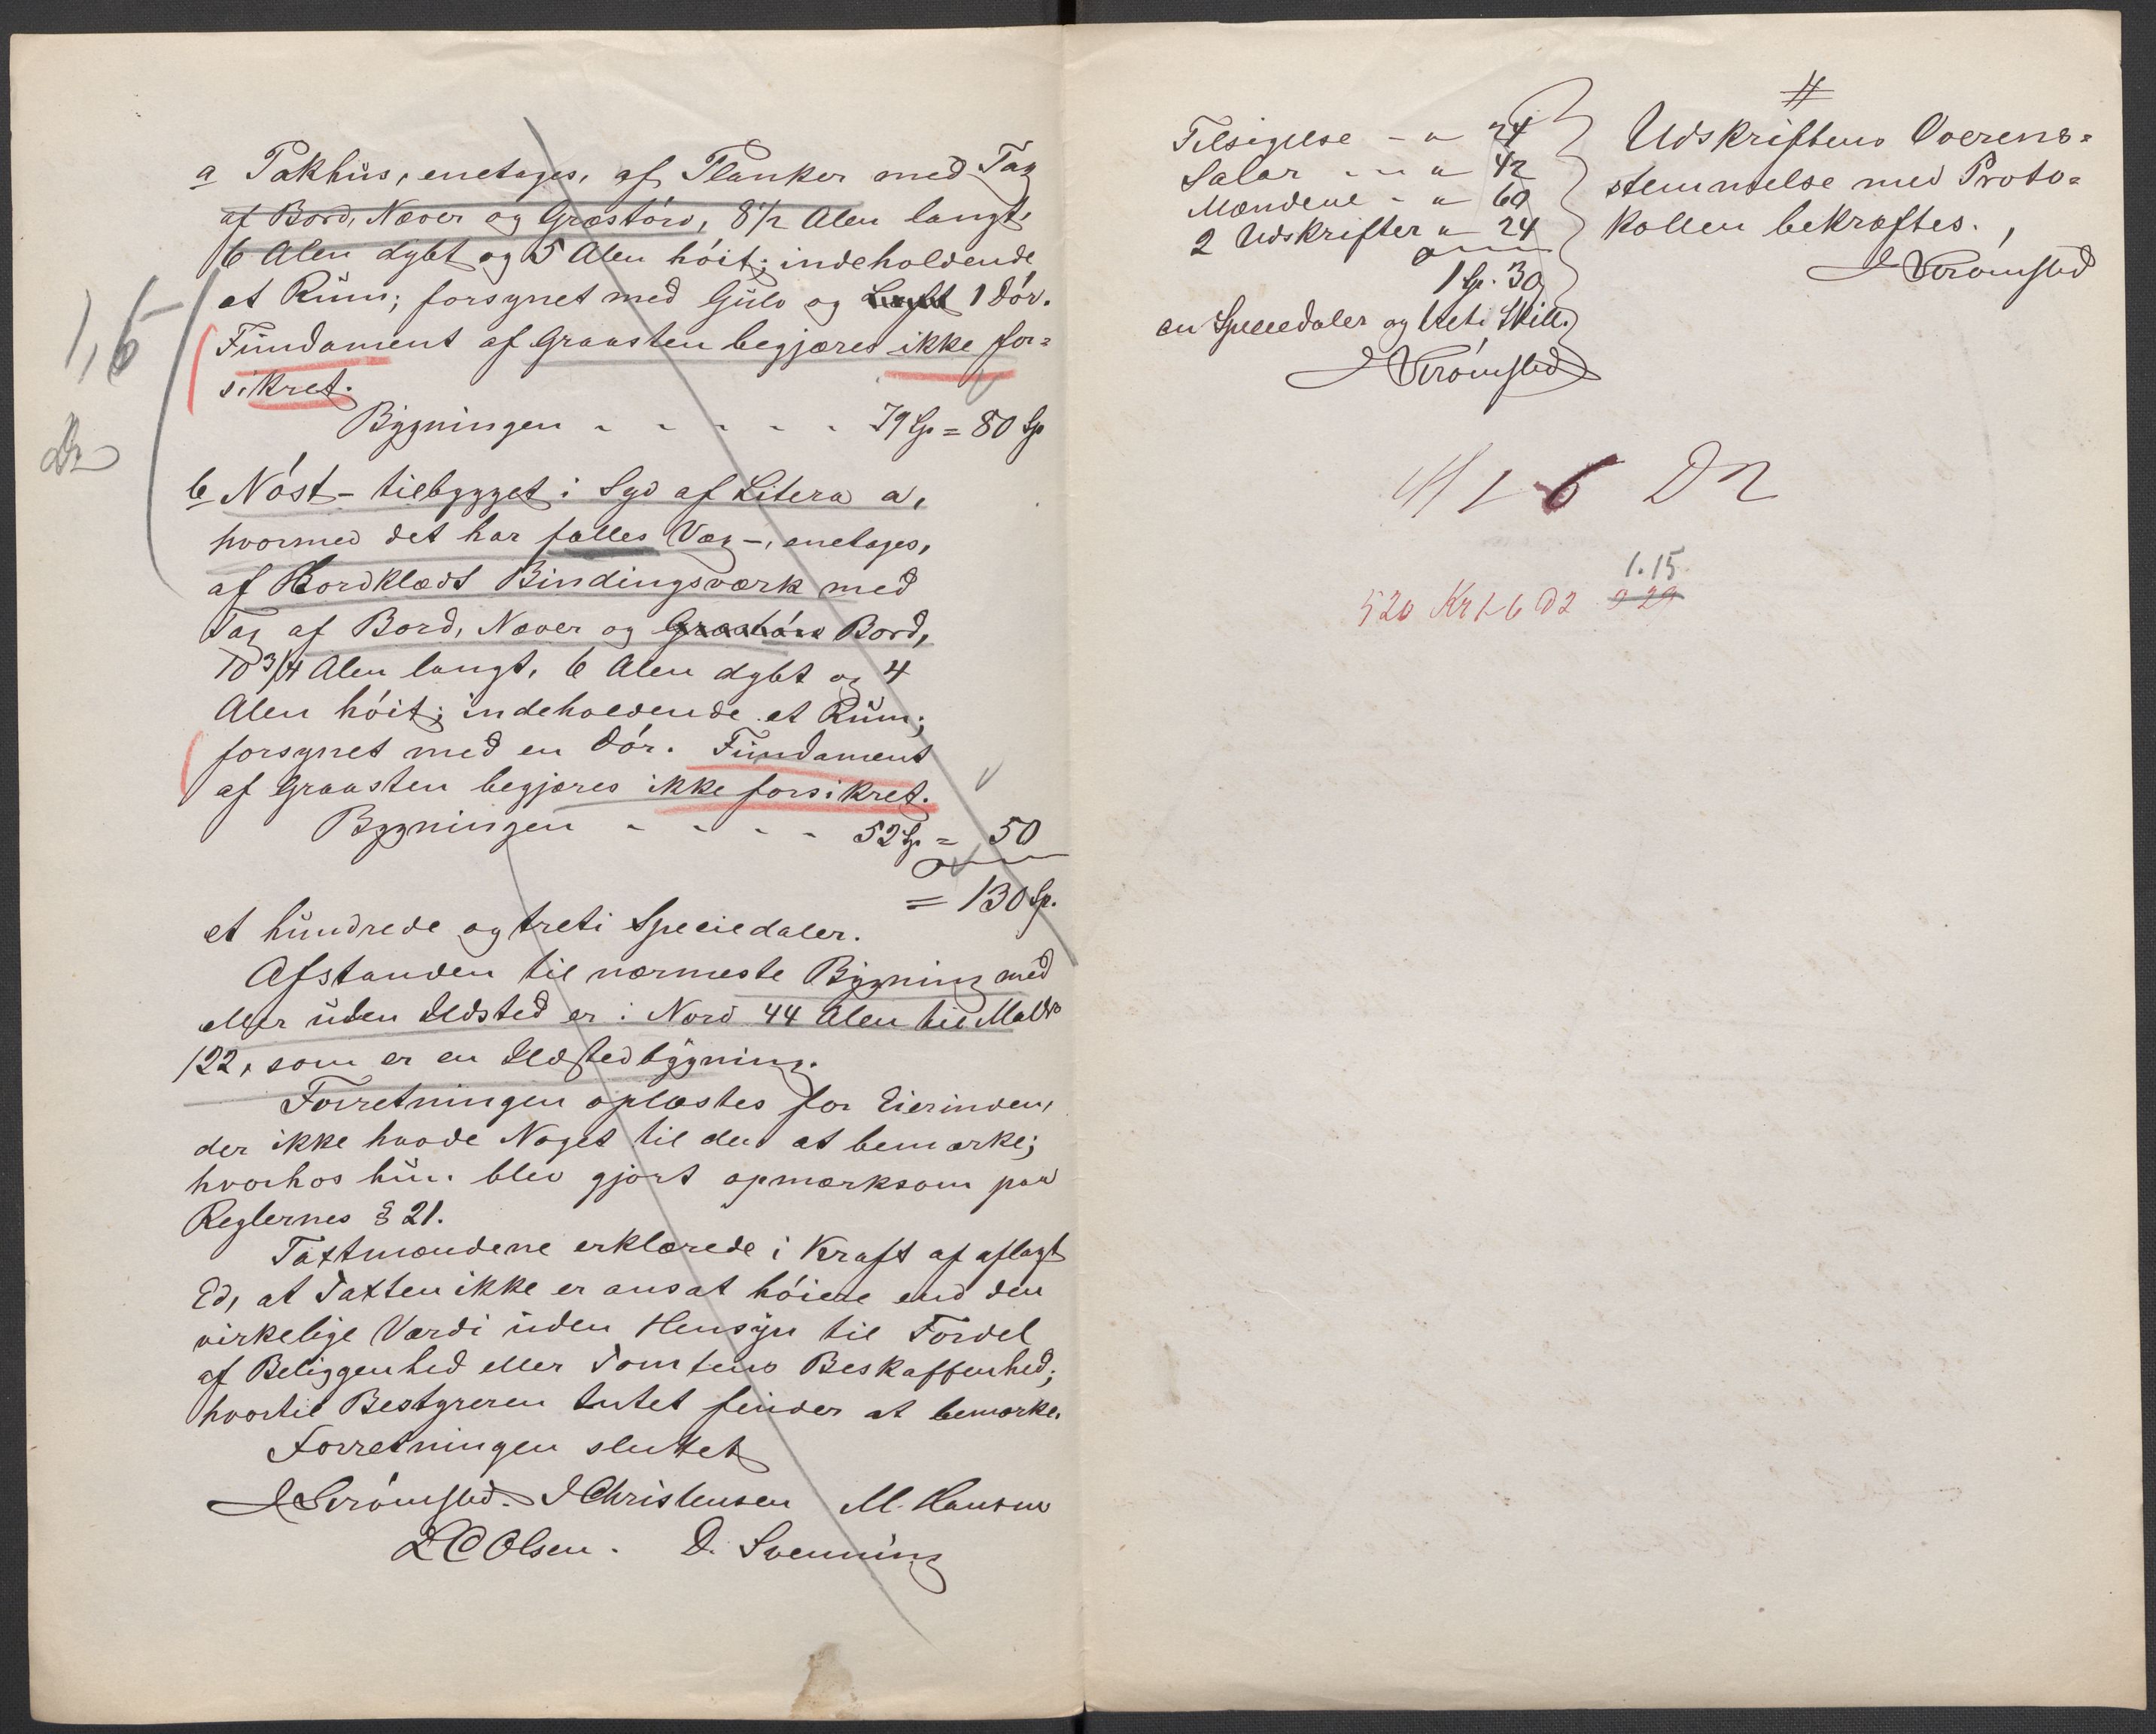 a Pakhus, enetages, af Planker med Tag
af Bord, Næver og Græstörv, 8 1/2 Alen langt,
6 Alen dybt og 5 Alen höit; indeholdende
et Rum; forsynet med Gulv og Loft 1 Dör.
Fundament af Graasten begjæres ikke for=
sikret.
Bygningen - - - - - 79 Sp = 80 Sp
1,6
D2
b Nöst - tilbygget i Syd af Litera a,
hvormed det har fælles Væg -, enetages,
af Bordklædt Bindingsværk med
Tag af Bord, Næver og Græstörv Bord,
10 3/4 Alen langt, 6 Alen dybt og 4
Alen höit; indeholdende et Rum;
forsynet med en Dör. Fundament
af Graasten begjæres ikke forsikret.
Bygningen - - - - 52 Sp = 50
= 130 Sp.
et hundrede og treti Speciedaler.
Afstanden til nærmeste Bygning med
eller uden Ildsted er i Nord 44 Alen til M
122, som er en Ildstedbygning.
Forretningen oplæstes for Eierinden,
der ikke havde Noget til den at bemærke;
hvorhos hun blev gjort opmærksom paa
Reglernes § 21.
Taxtmændene erklærede i Kraft af aflagt
Ed, at Taxten ikke er ansat höiere end den
virkelige Værdi uden Hensyn til Fordel
af Beliggenhed eller Tomtens Beskaffenhed;
hvortil Bestyreren Intet finder at bemærke.
Forretningen sluttet
J Strömsted. J Christensen M. Hansen
L C Olsen. D. Svenning
Tilsigelse - " 24
Salær - - " 42
Mændene - " 60
2 Udskrifter " 24
1 Sp. 30
en Speciedaler og treti Skill.
J Strömsted
#
Udskriftens Overens=
stemmelse med Proto=
kollen bekræftes.
J Strömsted
1-6 D2
1.15
520 Kr 1-6 D2 0 29